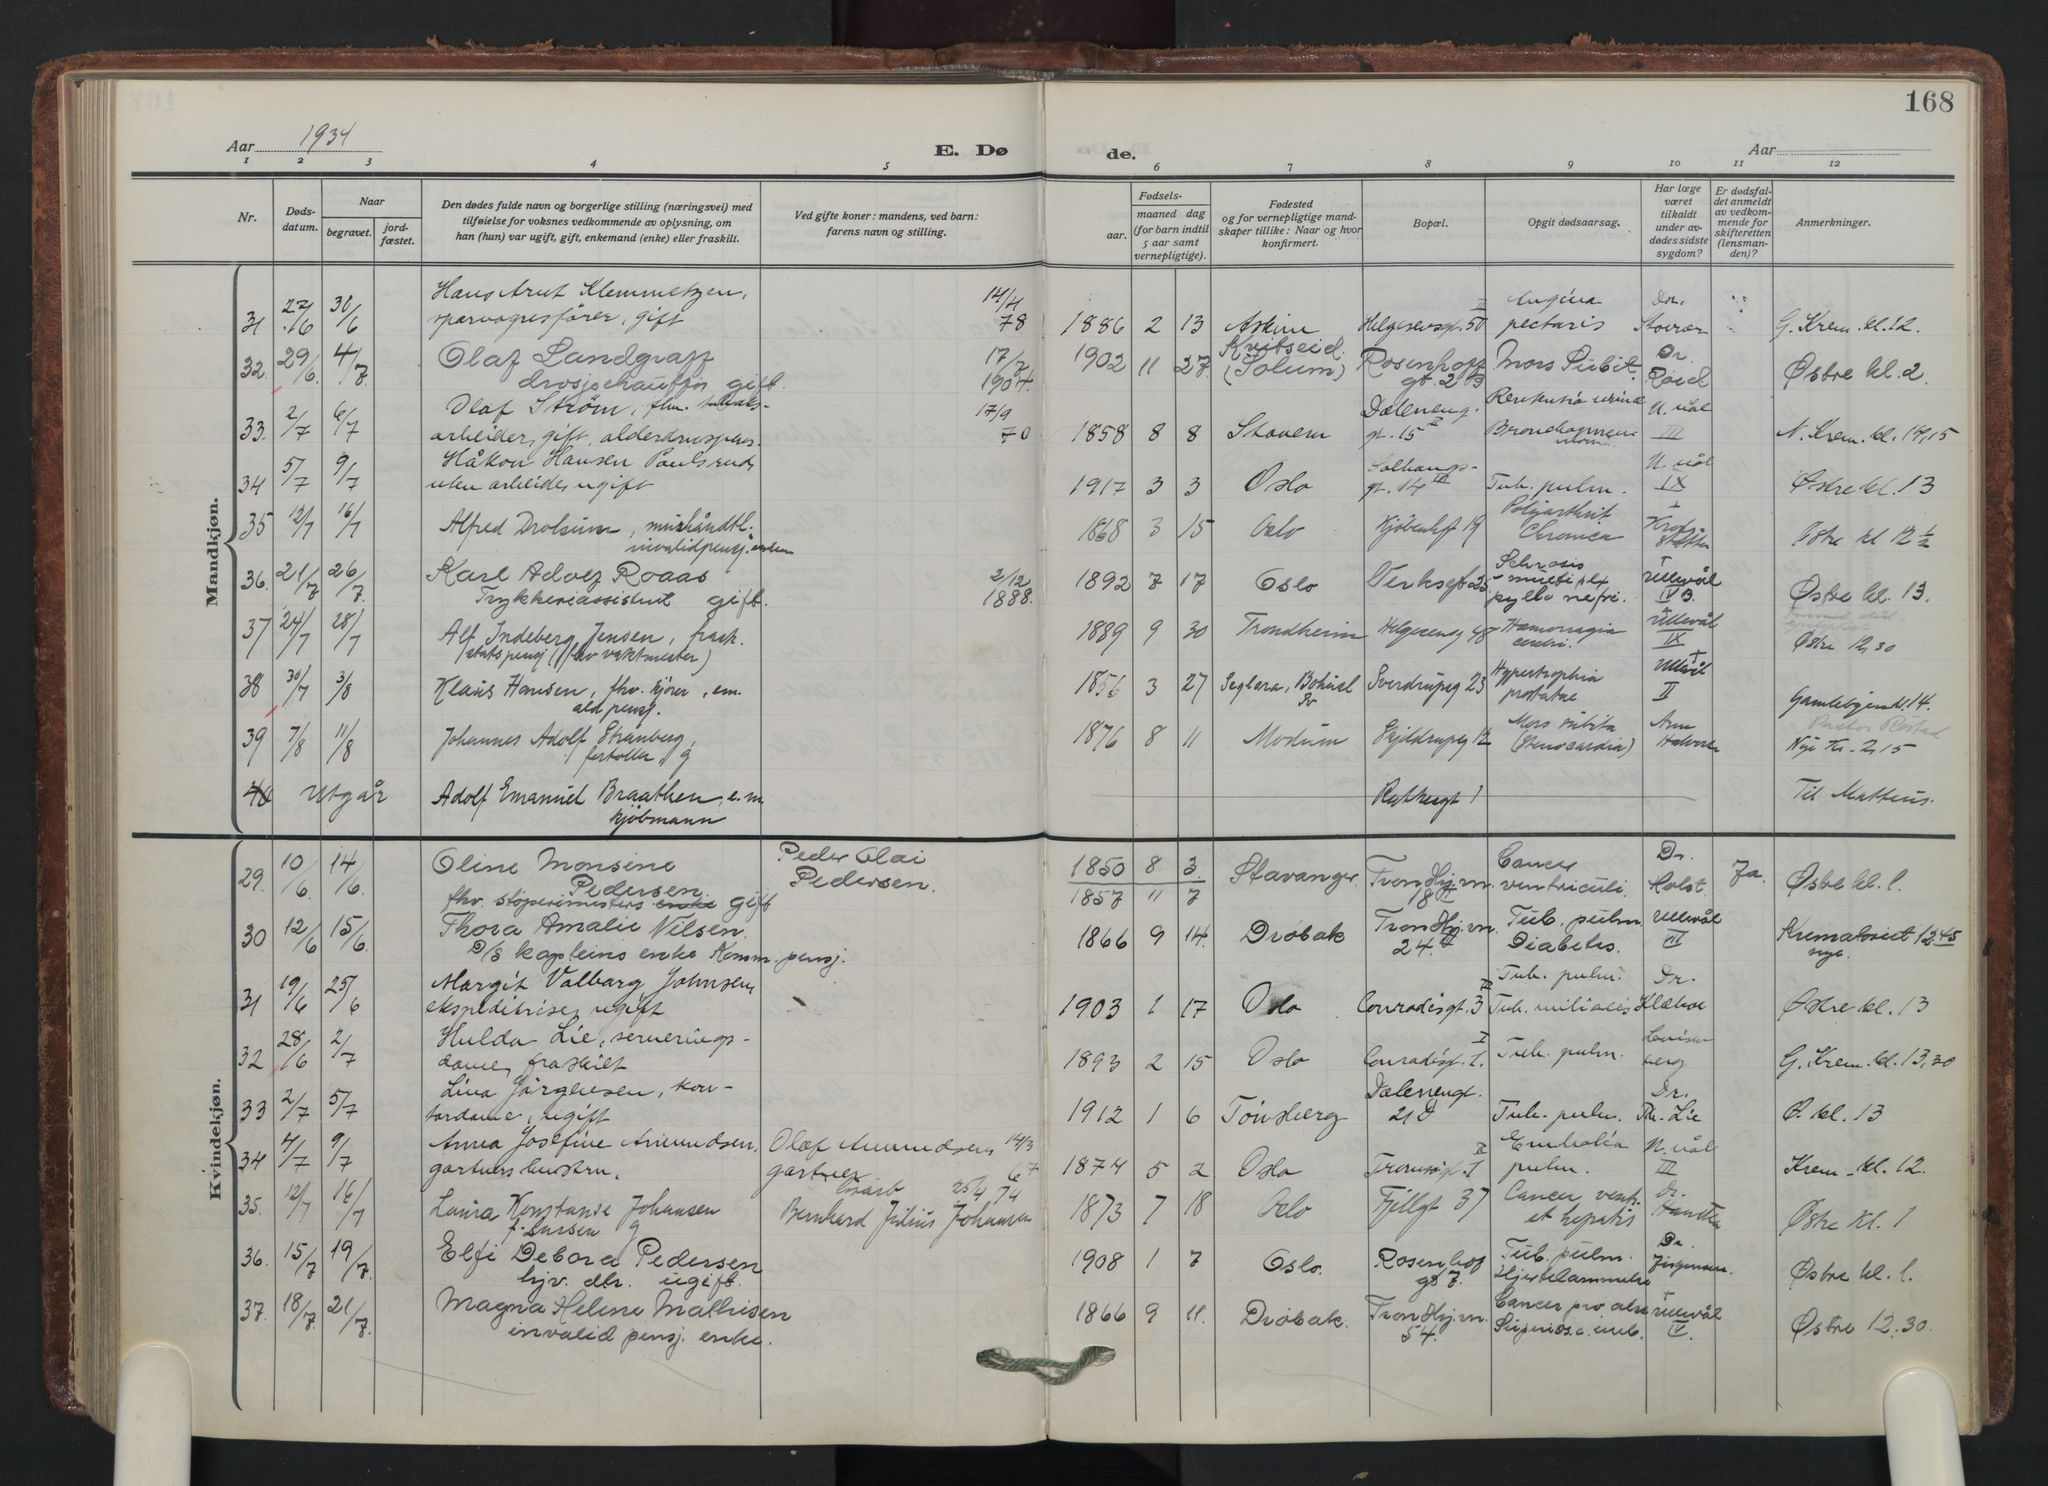 168
Aar 1934
E. Døde.
Aar
1 2 3 4 5 6 7 8 9 10 11 12
Nr.
Døds-
datum.
Naar
begravet.
jord-
fæstet.
Den dødes fulde navn og borgerlige stilling (næringsvei) med
tilføielse for voksnes vedkommende av oplysning, om
han (hun) var ugift, gift, enkemand (enke) eller fraskilt.
Ved gifte koner: mandens, ved barn:
farens navn og stilling.
Fødsels-
aar. maaned dag
(for barn indtil
5 aar samt
vernepligtige).
Fødested
og for vernepligtige mand-
skaper tillike: Naar og hvor
konfirmert.
Bopæl.
Opgit dødsaarsag.
Har læge
været
tilkaldt
under av-
dødes sidste
sygdom?
Er dødsfal-
det anmeldt
av vedkom-
mende for
skifteretten
(lensman-
den)?
Anmerkninger.
Mandkjøn.
31 27/6 30/6 Hans Arnt Klemmetzen, 14/4 Angina Dr.
sporvognsfører, gift 78 1886 2 13 Askim Helgesensgt. 50 II pectoris G. Krem. kl. 12.
32. 29/6 4/7 Olaf Landgraff 17/7 1902 11 27 Kvitseid Rosenhoff Mors Subit. Dr.
drosjechauffør gift. 1904 (Solum) gt. 2 B Østre kl. 2.
33. 2/7 6/7 Olaf Strøm, fhv. 17/9 Dæleneng. U. vål
arbeider, gift, alderdomspens. 70 1858 8 8 Stavern gt. 15 II III N. Krem. kl. 14,15
34 5/7 9/7 Håkon Hansen Paulsrud, U. vål
uten arbeide, ugift 1917 3 3 Oslo gt. 14 III Tub. pulm. IX Østre kl. 13
35 12/7 16/7 Alfred Drolsum, murhåndtl. 1868 3 15 Oslo Kjøbenhgt 19 Polyarthrit
invalidpensj. enkem Chronica Østre kl 12 1/2
36. 21/7 26/7 Karl Adolf Roaas 2/12 1892 7 17 Oslo Verksgt 25 Sclrosis multiplx Ullevål
Trykkeriassistent gift. 1888. pyllo nefri. IV B. Østre kl. 13.
37 24/7 28/7 Alf Indeberg Jensen, frask. 1889 9 30 Trondheim Helgesensg 48 Hæmorragia Ullevål
statspensj (fhv vaktmester) cerebri. IX Østre 12,30
38 30/7 3/8 Klaus Hansen, fhv. kjører, em. 1856 3 27 Seglera, Bohusl Sverdrupsg 23 Hypertrophia Ullevål
ald pensj. Sv prostatae II Gamlebyend. 14.
39 7/8 11/8 Johannes Adolf Strånberg, 1876 8 11 Modum Skjeldrupsg 12 Mors subita
fortoller, g (Stenocardia) Nye Kr. 2,15
40 Utgår Adolf Emanuel Braathen, e.m. Til Matteus.
kjøbmann
Kvindekjøn.
29. 10/6 14/6 Oline Monsine Peder Olai 1850 8 3 Stavanger Trondhj.vn. Cancer Dr. Ja. Østre kl. 1.
Pedersen. Pedersen. 1857 11 7 18 II ventriculi. Holst
fhv. støperimesters enke gift
30 12/6 15/6. Thora Amalie Nilsen. 1866 9 14. Drøbak Trondhj.vn. Tub. pulm. Ullevål Krematoriet 12.45
D/S kapteins enke Komm. pensj. 24. Diabetes. VII nye.
31 19/6 25/6 Margit Valborg Johnsen, Tub. pulm. Dr.
ekspeditrise, ugift 1903 1 17 Oslo Conradisgt. 3 II Tub. miliaris Klæboe Østre kl. 13
32 28/6 2/7 Hulda Lie, serverings-
dame, fraskilt 1893 2 15 Oslo Conradisgt. 1. Tub. pulm. G. Krem. kl. 13,30
33 2/7 5/7 Lina Jørgensen, kon- Dælenengt. Dr.
tordame, ugift 1912 1 6 Tønsberg 21 Tub. pulm. Th. Lie Ø. kl. 13
34 4/7 9/7 Anna Josefine Amundsen, Olaf Amundsen 14/3 Embolia U. vål
gartners hustru. gartner 67 1874 5 2 Oslo Tromsøgt. 1 II pulm. III Krem. kl. 12.
35. 12/7 16/7 Laura Konstanse Johansen løsarb 25/4 74 1873 7 18 Oslo Fjellgt 37 Cancer vent. Dr.
f. Larsen g Bernhard Julius Johansen et hepatis Østre kl. 1
36. 15/7 19/7. Elfi Debora Pedersen 1908 1 7 Oslo. Rosenhof Tub. pulm. Dr.
hjv. dtr. ugift. gt 7. Hjertelammelse Jørgensen. Østre kl. 1.
37. 18/7. 21/7. Magna Helene Mathisen 1866 9 11. Drøbak. Trondhj.vn. Cancer Ullevål
invalid pensj. enke. 54. V. Østre 12.30.